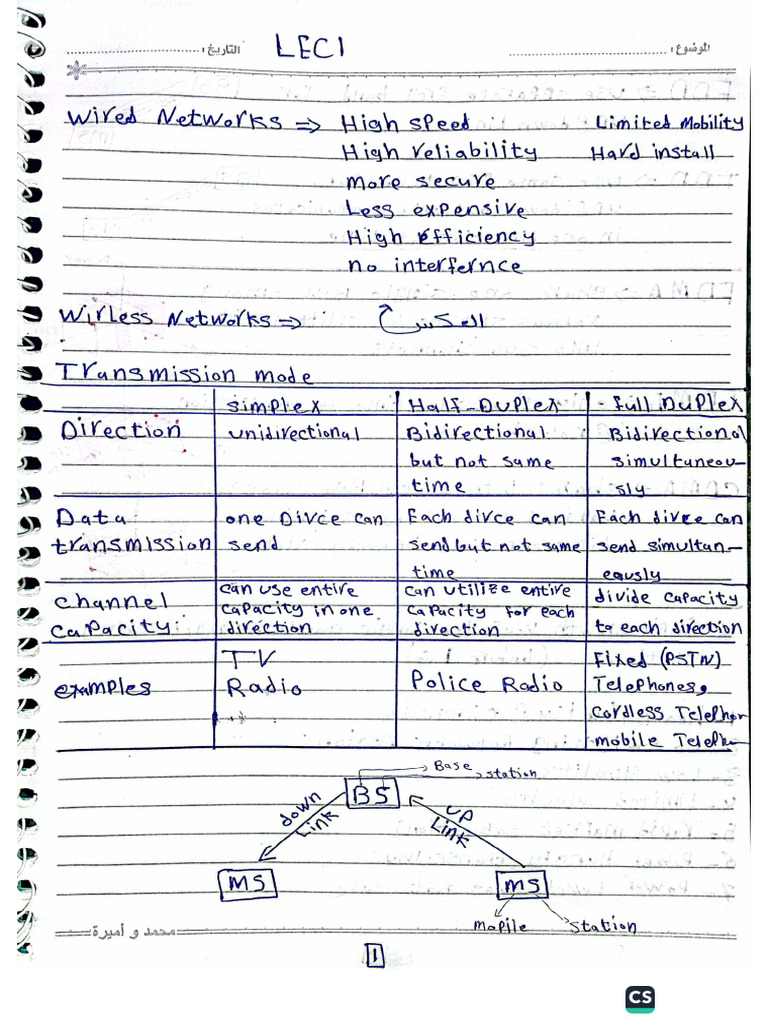 الموضوع : التاريخ :
LEC1
Wired Networks => High speed Limited Mobility
High reliability Hard install
more secure
Less expensive
High Efficiency
no interfernce
Wirless Networks => العكس
Transmission mode
simplex Half-Duplex Full Duplex
Direction unidirectional Bidirectional Bidirectional
but not same simultaneou-
time sly
Data one Divce can Each divce can Each divce can
transmission send send but not same send simultan-
time eously
channel can use entire can utilize entire divide capacity
capacity: capacity in one capacity for each to each direction
direction direction
TV Fixed (PSTN)
examples Radio Police Radio Telephones,
cordless Telephon
mobile Teleph
Base
station
BS
down Link
up Link
MS MS
mopile station
محمد و أميرة
1
CS